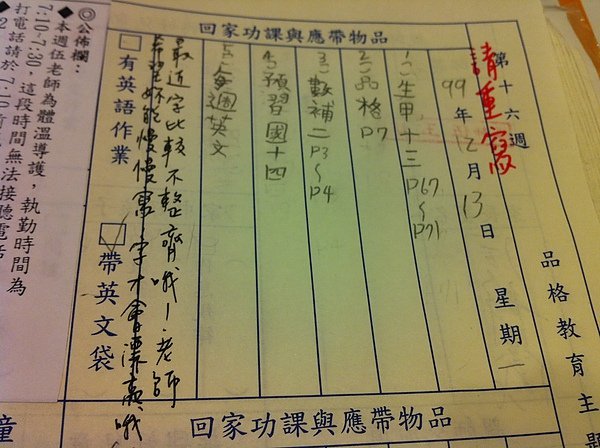 品格教育主題
第十六週 99年12月13日 星期一
請重寫
回家功課與應帶物品
一、生甲十三 P67~P71
二、品格P7
三、數補二P3~P4
四、預習國十四
五、每週英文
最近字比較不整齊哦!老師
希望妳能慢慢寫,字才會漂亮哦
□有英語作業 □帶英文袋
◎公佈欄:
◆本週伍老師為體溫導護,執勤時間為
7:10~7:30,這段時間無法接聽電話
打電話請於7:10前
回家功課與應帶物品
童